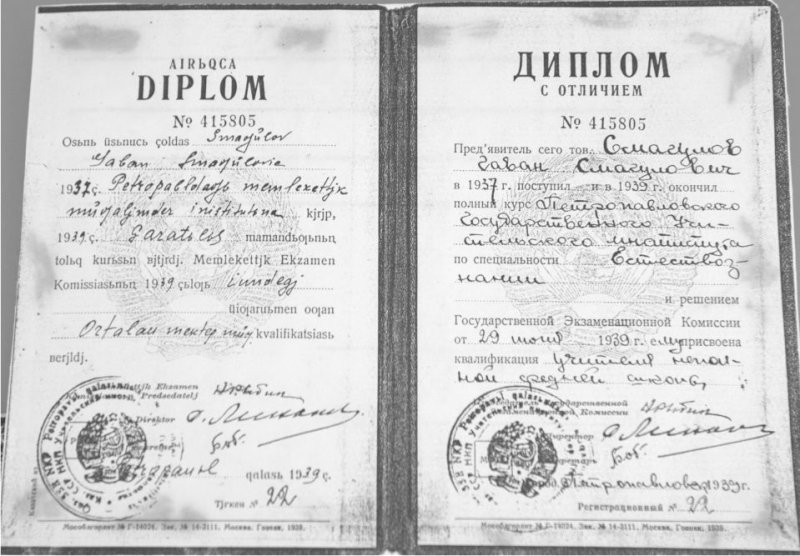 AIRЬQCA
DIPLOM
№ 415805
Osьnь üsьnucь çoldas Smaƣulov
Ƣaban Smaƣuloviç
1937 ç. Petropavldaƣь memlekettjk
muƣaljmder institutьna kjrjp,
1939 ç. mamandьƣьnьꞑ
tolьq kursьn bjtjrdj. Memlekettjk Ekzamen
Komissiasьnьꞑ 1939 çьlƣь
uiƣarumen oƣan
Ortalau mektep kvalifikatsiasь
berjldj.
Predsedatelj
Direktor
qalasь 1939 ç.
Tjrkeu № 22
Мособлгорлит № Г-14024. Зак. № 14-2111. Москва. Гознак, 1939.
ДИПЛОМ
С ОТЛИЧИЕМ
№ 415805
Пред'явитель сего тов. Смагулов
Габан Смагулович
в 1937 г. поступил и в 1939 г. окончил
полный курс Петропавловского
Государственного Учи-
тельского института
по специальности Естествоз-
нании
и решением
Государственной Экзаменационной Комиссии
от 29 июня 1939 г. ему присвоена
квалификация учителя непол-
ной средней школы,
Директор
Петропавловск 1939 г.
Регистрационный № 22
Мособлгорлит № Г-14024. Зак. № 14-2111. Москва. Гознак, 1939.